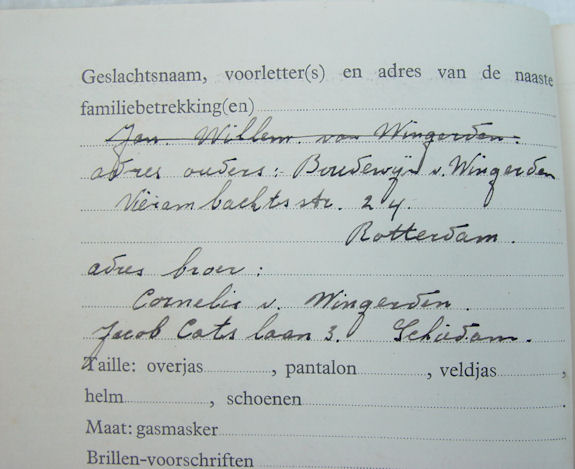 Geslachtsnaam, voorletter(s) en adres van de naaste
familiebetrekking(en)
Jan. Willem. van Wingerden.
adres ouders: Boudewijn v. Wingerden
Vierambachtsstr. 24.
Rotterdam.
adres broer:
Cornelis v. Wingerden.
Jacob Cats laan 3. Schiedam.
Taille: overjas , pantalon , veldjas ,
helm , schoenen .
Maat: gasmasker
Brillen-voorschriften